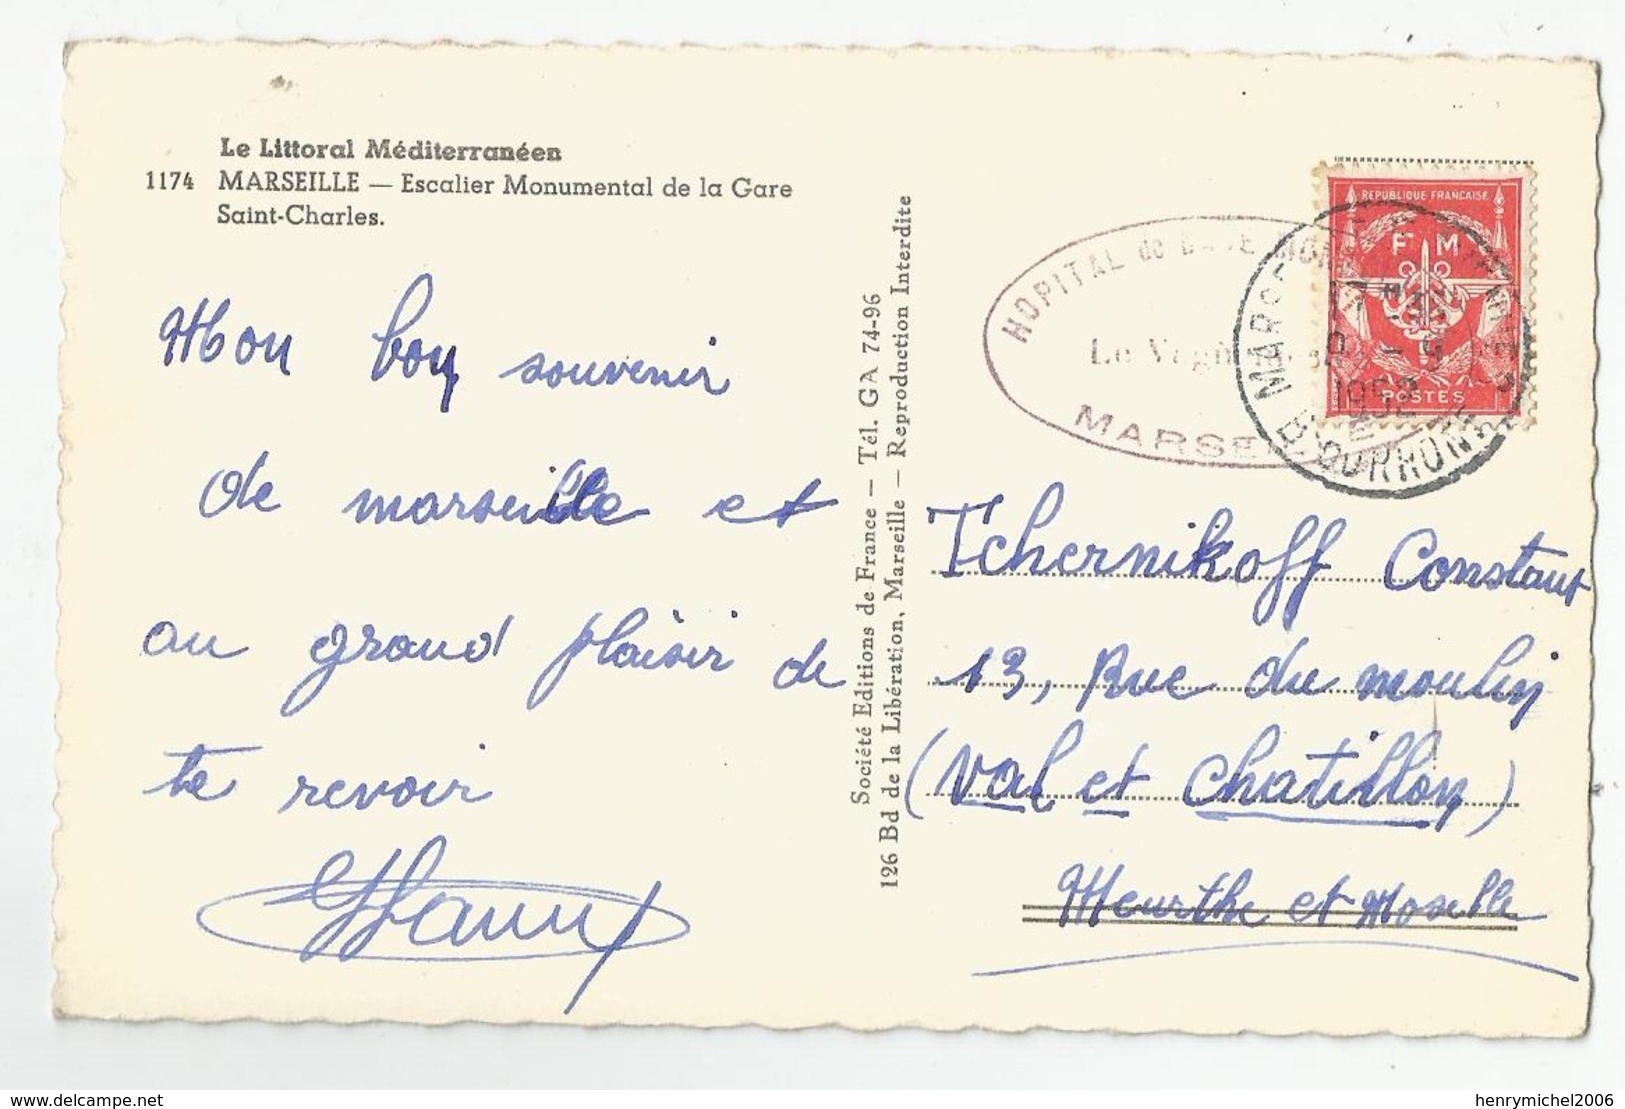 Le Littoral Méditerranéen
1174 MARSEILLE — Escalier Monumental de la Gare
Saint-Charles.
Mon bon souvenir
de marseille et
au grand plaisir de
te revoir
Société Editions de France — Tél. GA 74-96
126 Bd de la Libération, Marseille — Reproduction Interdite
HOPITAL de
Le
MARSE
REPUBLIQUE FRANÇAISE
F M
POSTES
1952
B. DU RHONE
Tchernikoff Constant
13, Rue du moulin
(Val et Chatillon)
Meurthe et Moselle
delcampe.net
henrymichel2006